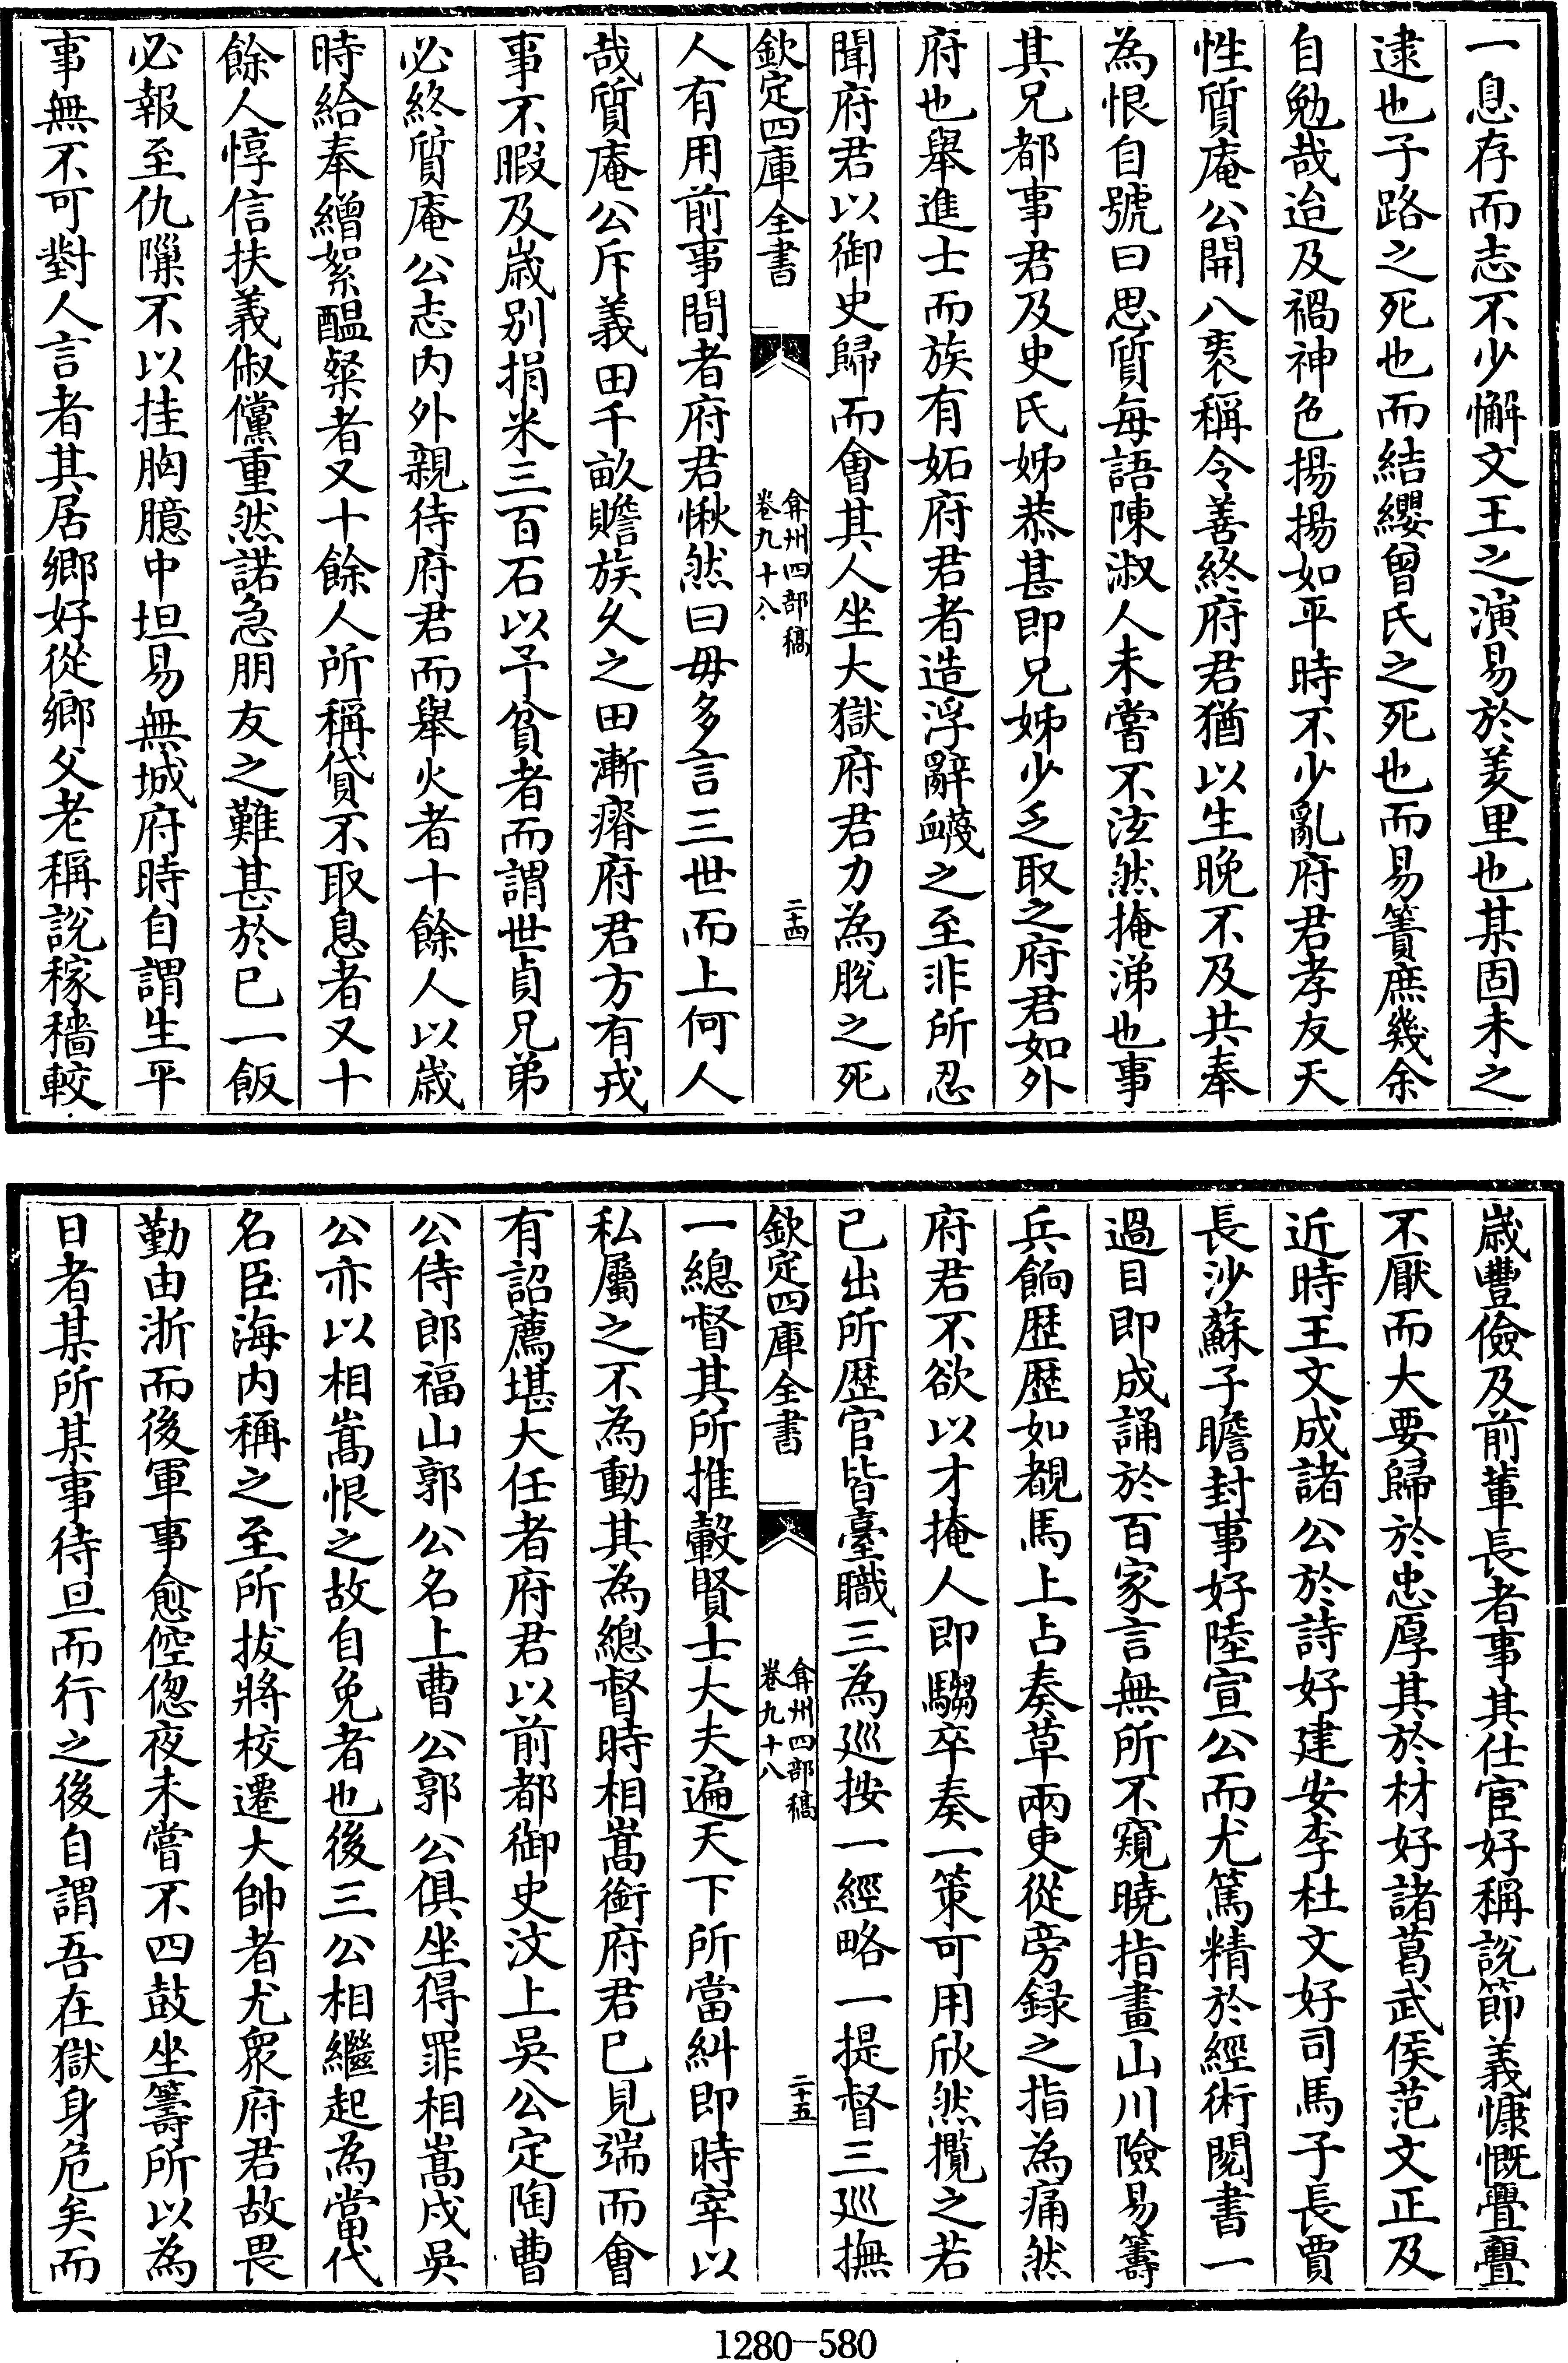 一息存而志不少懈文王之演易於羑里也某固未之
逮也子路之死也而結纓曾氏之死也而易簀庶幾余
自勉哉迨及禍神色揚揚如平時不少亂府君孝友天
性質庵公開八袠稱令善終府君猶以生晚不及共奉
為恨自號曰思質每語陳淑人未嘗不泫然掩涕也事
其兄都事君及史氏姊恭甚即兄姊少乏取之府君如外
府也舉進士而族有妬府君者造浮辭衊之至非所忍
聞府君以御史歸而會其人坐大獄府君力為脫之死
欽定四庫全書
弇州四部稿
卷九十八
二十四
人有用前事間者府君愀然曰毋多言三世而上何人
哉質庵公斥義田千畝贍族久之田漸瘠府君方有戎
事不暇及嵗别捐米三百石以予貧者而謂世貞兄弟
必終質庵公志内外親待府君而舉火者十餘人以嵗
時給奉繒絮醖粲者又十餘人所稱貸不取息者又十
餘人惇信扶義俶儻重然諾急朋友之難甚於已一飯
必報至仇隟不以挂胸臆中坦易無城府時自謂生平
事無不可對人言者其居鄉好從鄉父老稱說稼穡較
嵗豐儉及前輩長者事其仕宦好稱說節義慷慨亹亹
不厭而大要歸於忠厚其於材好諸葛武侯范文正及
近時王文成諸公於詩好建安李杜文好司馬子長賈
長沙蘇子瞻封事好陸宣公而尤篤精於經術閱書一
過目即成誦於百家言無所不窺曉指畫山川險易籌
兵餉歴歴如覩馬上占奏草兩吏從旁録之指為痛然
府君不欲以才掩人即騶卒奏一策可用欣然攬之若
已出所歴官皆臺職三為廵按一經略一提督三廵撫
欽定四庫全書
弇州四部稿
卷九十八
二十五
一總督其所推轂賢士大夫遍天下所當糾即時宰以
私屬之不為動其為總督時相嵩銜府君已見端而會
有詔薦堪大任者府君以前都御史汶上吳公定陶曹
公侍郎福山郭公名上曹公郭公俱坐得罪相嵩戍吳
公亦以相嵩恨之故自免者也後三公相繼起為當代
名臣海内稱之至所拔將校遷大帥者尤衆府君故畏
勤由浙而後軍事愈倥偬夜未嘗不四鼓坐籌所以為
日者某所某事待旦而行之後自謂吾在獄身危矣而
1280—580